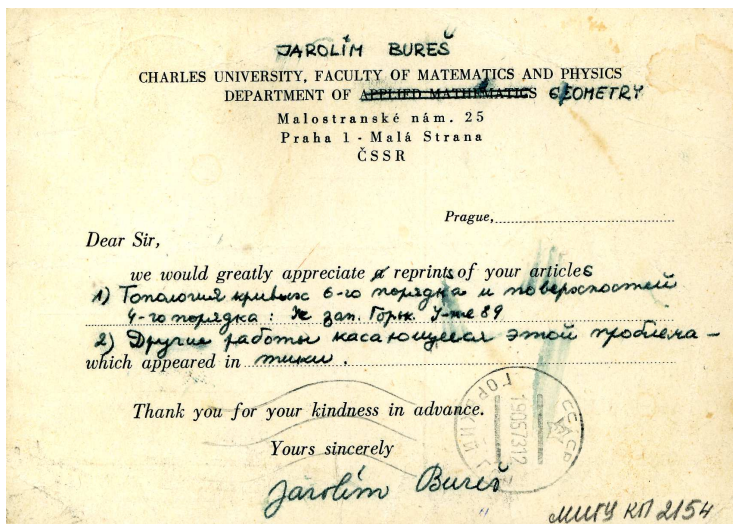 JAROLÍM BUREŠ
CHARLES UNIVERSITY, FACULTY OF MATEMATICS AND PHYSICS
DEPARTMENT OF APPLIED MATHEMATICS GEOMETRY
Malostranské nám. 25
Praha 1 - Malá Strana
ČSSR
Prague,
Dear Sir,
we would greatly appreciate a reprints of your articles
1) Топология кривых 6-го порядка и поверхностей
4-го порядка : Уч зап. Горьк. У-та 89
2) Другие работы касающееся этой проблема-
which appeared in тики .
Thank you for your kindness in advance.
Yours sincerely
Jarolím Bureš
СССР
ГОРЬКИЙ
19057312
МИГУ КП 2154